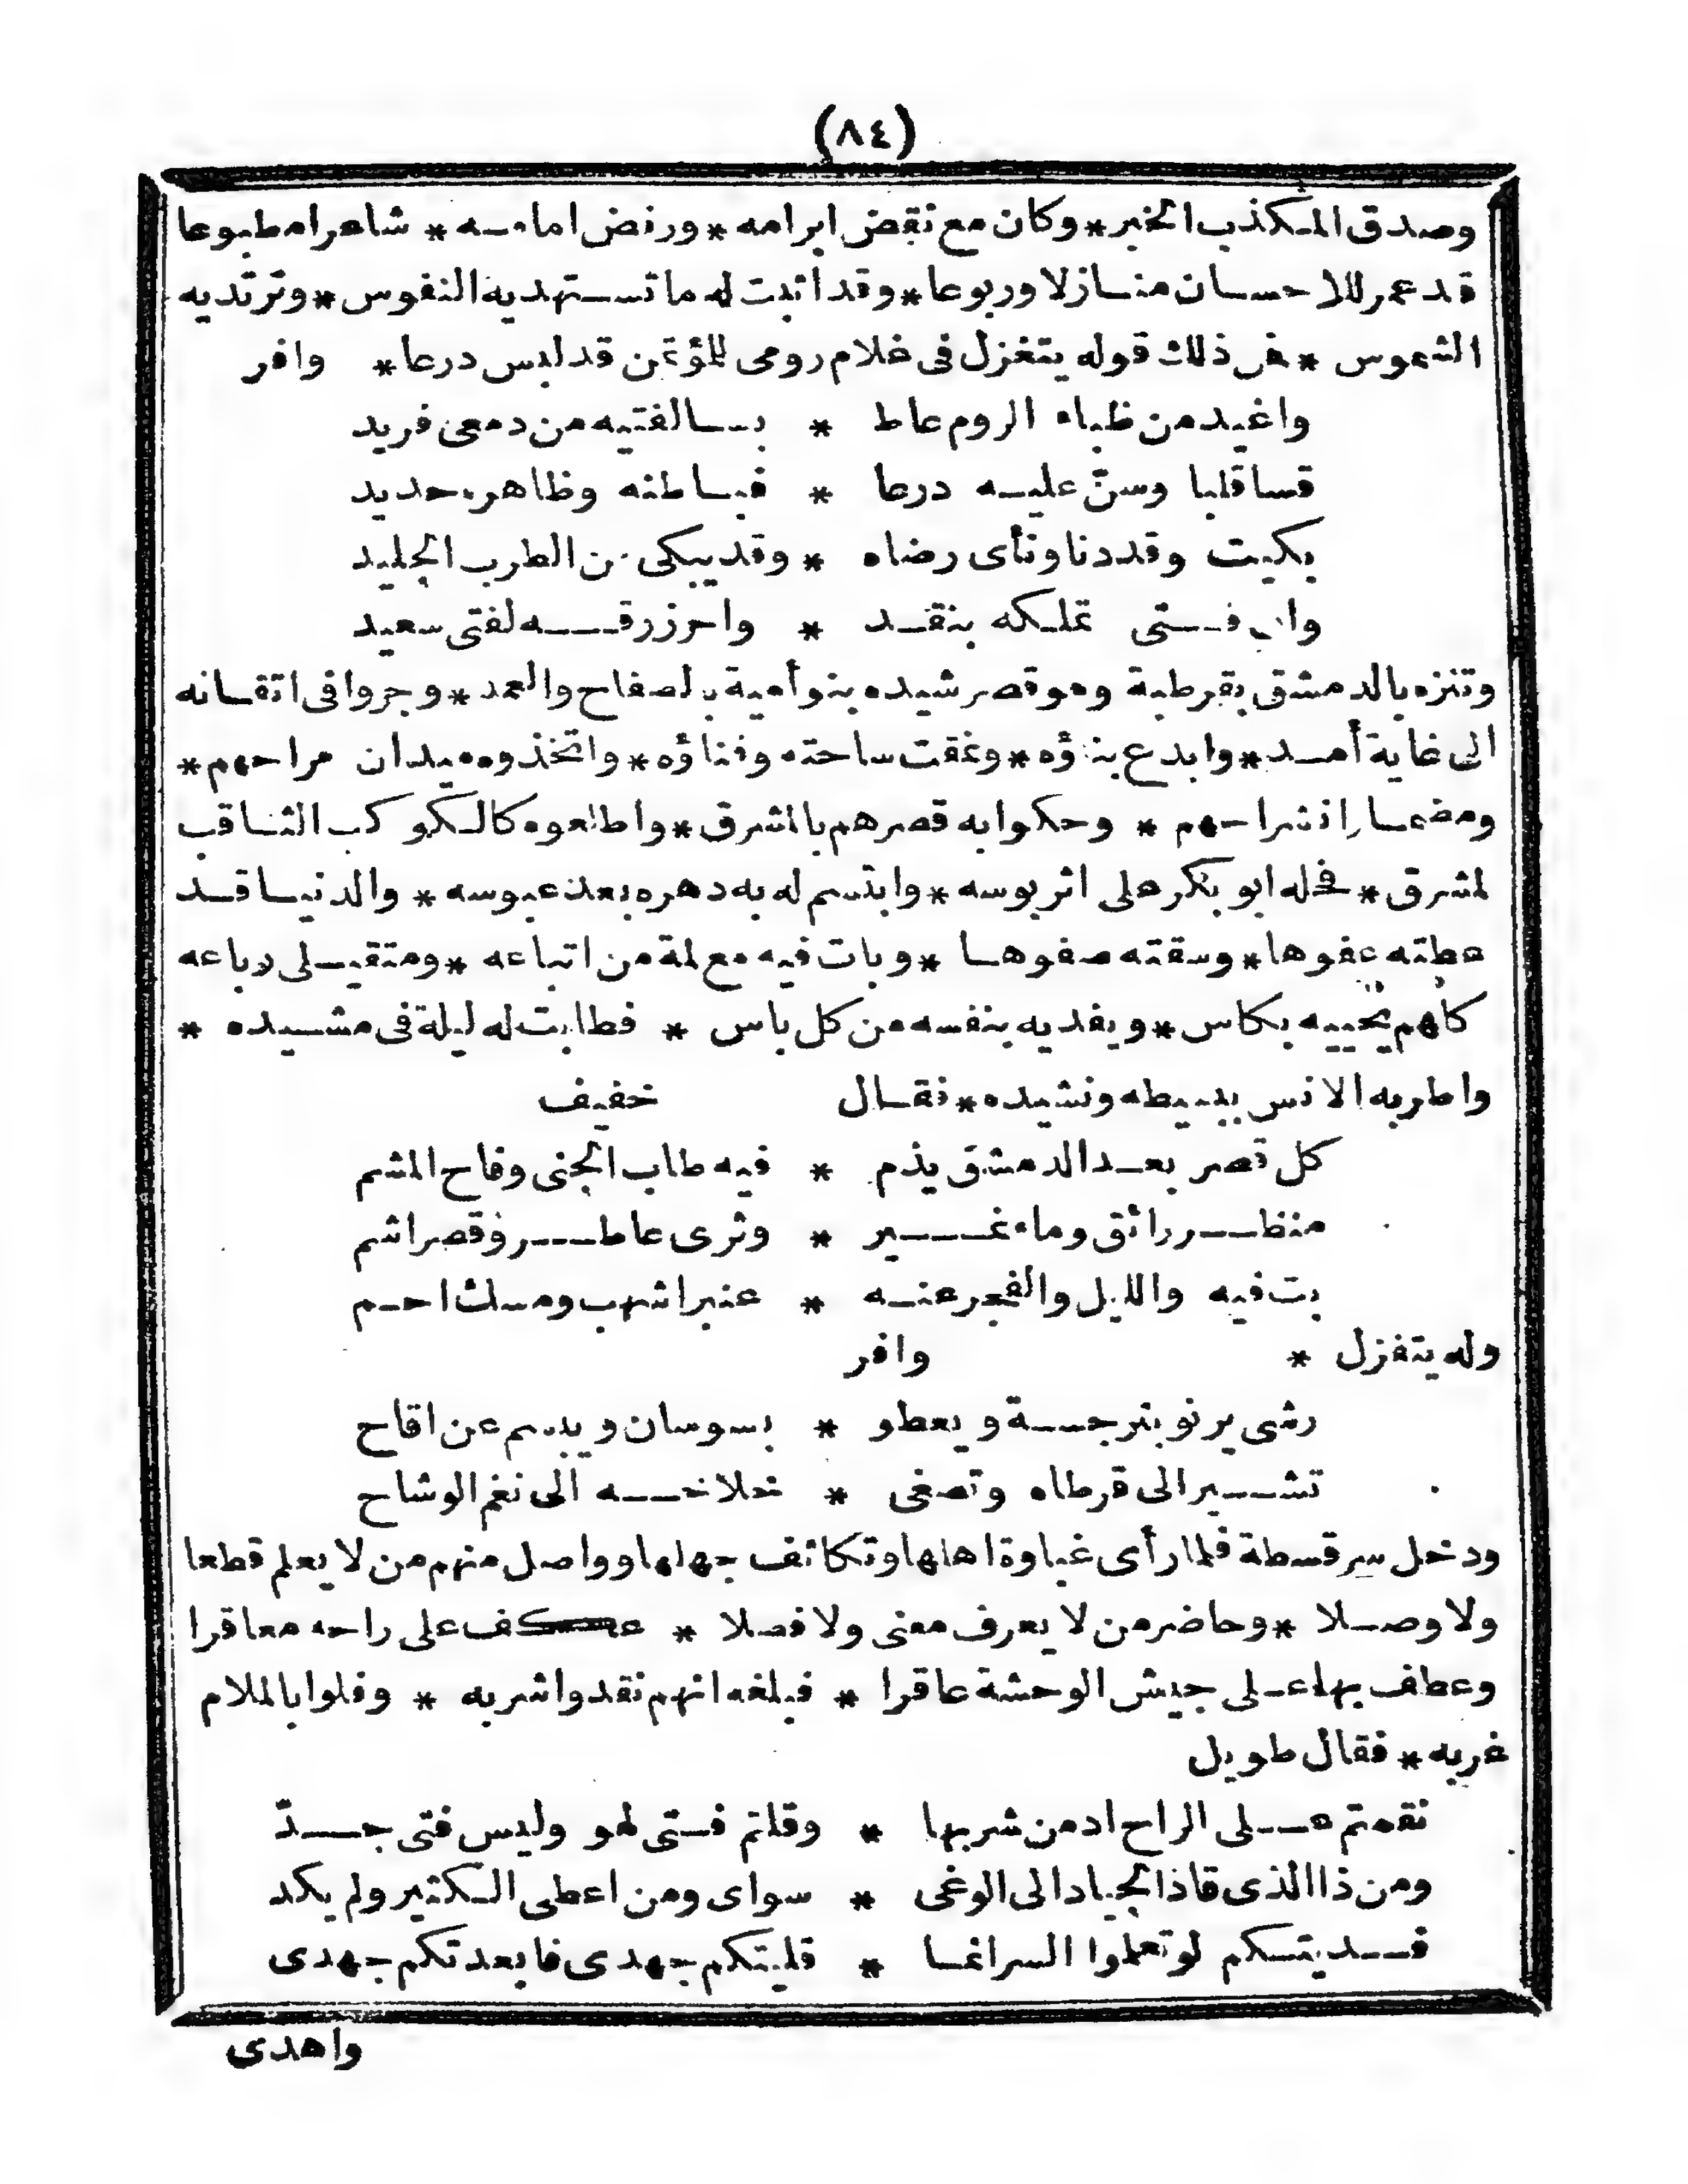 (٨٤)
وصدق المكذب الخبر * وكان مع نقض ابرامه * ورفض امامه * شاعرا مطبوعا
قد عمر للاحسان منازلا وربوعا * وقد اثبت له ما تستهديه النفوس * وترتديه
الشموس * فمن ذلك قوله يتغزل فى غلام رومى للمؤتمن قد لبس درعا * وافر
واغيد من ظباء الروم عاط * بسالفتيه من دمعى فريد
قسا قلبا وسنّ عليه درعا * فباطنه وظاهره حديد
بكيت وقد دنا ونأى رضاه * وقد يبكى من الطرب الجليد
وان فتى تملكه بنقد * واحرز رقه لفتى سعيد
وتنزه بالدمشق بقرطبة وهو قصر شيده بنو أمية بالصفاح والعمد * وجروا فى اتقانه
الى غاية أمد * وابدع بناؤه * ونمقت ساحته وفناؤه * واتخذوه ميدان مراحهم *
ومضمار انشراحهم * وحكوا به قصرهم بالمشرق * واطلعوه كالكوكب الثاقب
لمشرق * فحله ابو بكر على اثر بوسه * وابتسم له به دهره بعد عبوسه * والدنيا قد
عطته عفوها * وسقته صفوها * وبات فيه مع لمة من اتباعه * ومتقيلى رباعه
كلهم يحييه بكاس * ويفديه بنفسه من كل باس * فطابت له ليلة فى مشيده *
واطربه الانس ببسيطه ونشيده * فقال خفيف
كل قصر بعد الدمشق يذم * فيه طاب الجنى وفاح المشم
منظر رائق وماء نمير * وثرى عاطر وقصر اشم
بت فيه والليل والفجر عنه * عنبر اشهب ومسك احم
وله يتغزل * وافر
رشى يرنو بنرجسة ويعطو * بسوسان ويبسم عن اقاح
تشير الى قرطاه وتصغى * خلاخه الى نغم الوشاح
ودخل سرقسطة فلما رأى غباوة اهلها وتكاثف جهلها وواصل منهم من لا يعلم قطعا
ولا وصلا * وحاضر من لا يعرف معنى ولا فصلا * عكف على راحه معاقرا
وعطف بها على جيش الوحشة عاقرا * فبلغه انهم نقدوا شربه * وفلوا بالملام
غربه * فقال طويل
نقمتم على الراح ادمن شربها * وقلتم فتى لهو وليس فتى جدّ
ومن ذا الذى قاد الجياد الى الوغى * سواى ومن اعطى الكثير ولم يكد
فديتكم لو تعلموا السر انما * قليتكم جهدى فابعدتكم جهدى
واهدى